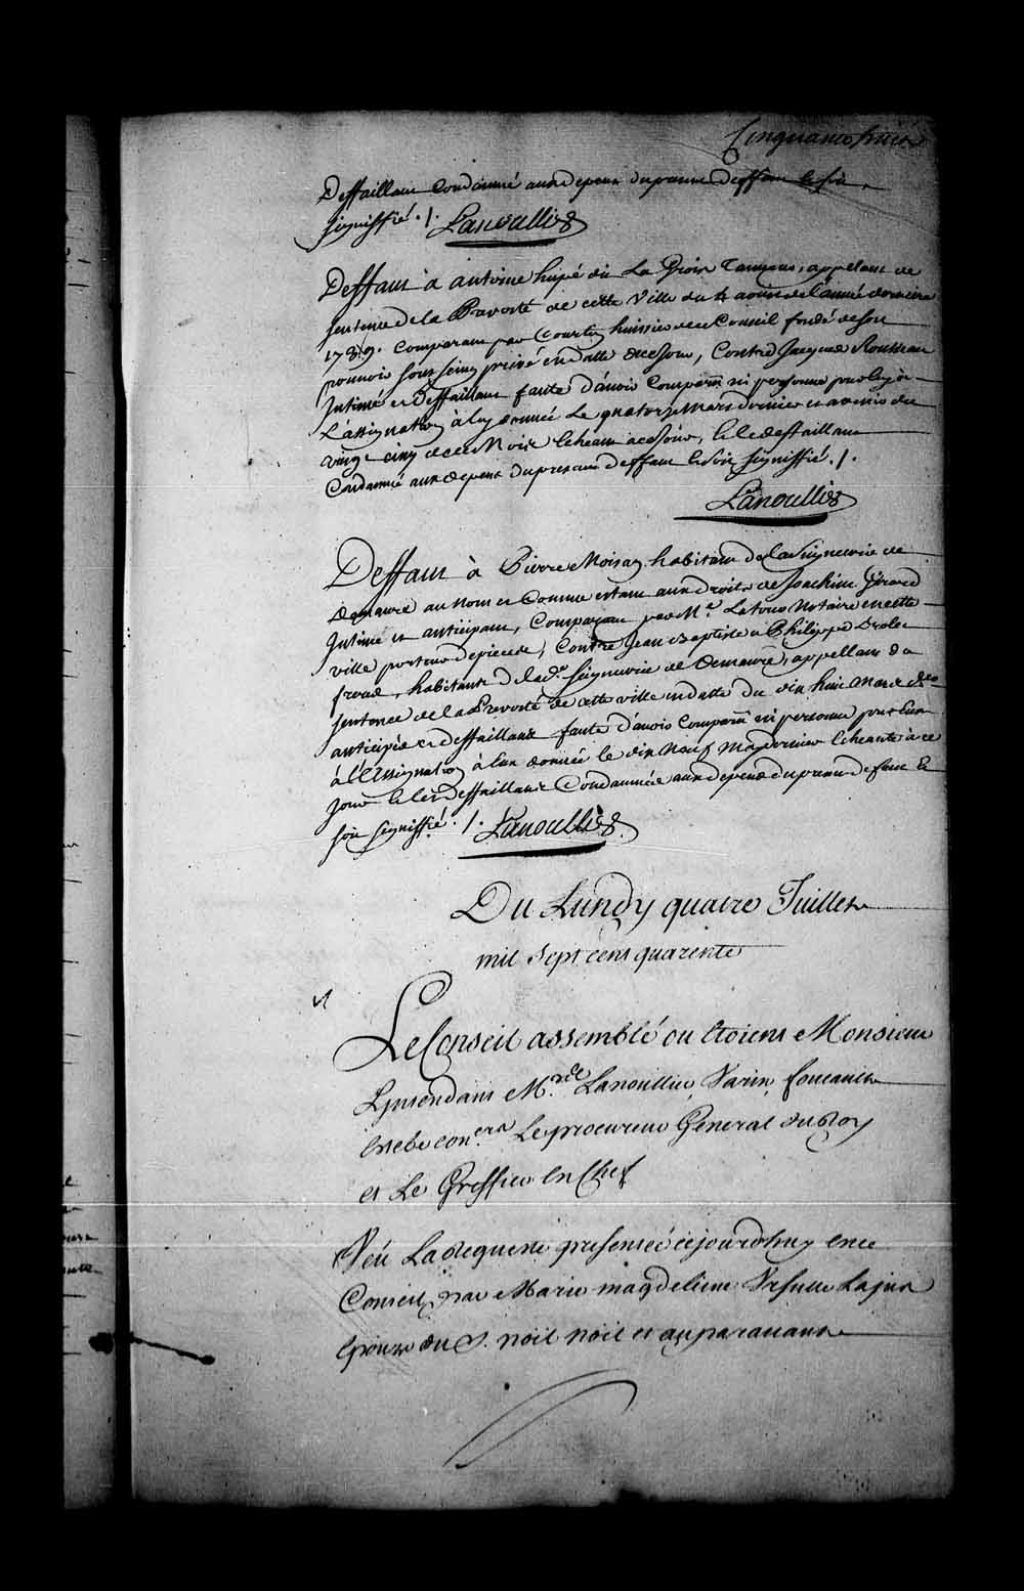 Cinquante huit
Deffaillant Condamné aux depens du present deffaut le soit
signiffié ./. Lanoullier
Deffaut à antoine hupé dit La Groix Tanneur, appelant de
sentence de la Prevosté de cette Ville du aoust de l'année derniere
1739. comparant par Courtin huissier en ce Conseil fondé de son
pouvoir sous seing privé en datte de ce Jour, Contre Jacques Rousseau
Intimé et Deffaillant faute d'avoir Comparu ni personne pour luy à
L'assignation à luy donnée Le quatorze Mars dernier et avenir du
vingt cinq de ce Mois echeant a ce Jour, led deffaillant
Condamné aux depens du present deffaut le Soit signiffié ./.
Lanoullier
Deffaut à Pierre Moisan habitant de la Seigneurie de
demaure au nom et Comme estant aux droits de Joachim Girard
Intimé et anticipant, Comparant par Me. Latour Notaire en cette
ville porteur de pieces, Contre Jean Baptiste et Philippe Drolet
freres, habitants de lade. Seigneurie de demaure, appellans de
sentence de la Prevosté de cette ville en datte du dix huit mars der.
anticipés et deffaillans faute d'avoir Comparu ni personne pour Eux
à l'Assignation à Eux donnée le dix Neuf may dernier echeante à ce
Jour lesd. deffaillans Condamnés aux depens du present defaut le
soit signiffié ./. Lanoullier
Du Lundy quatre Juillet
mil sept cent quarente
Le Conseil assemblé ou Etoient Monsieur
L'Intendant Mrs. Me Lanoullier Varin, foucault
Estebe coners. Le procureur General du Roy
et Le Greffier en Chef
Veu La Requeste presentée cejourd'huy en ce
Conseil par Marie magdeleine Ursulle Lajus
Epouse du S. noël noël et auparavant